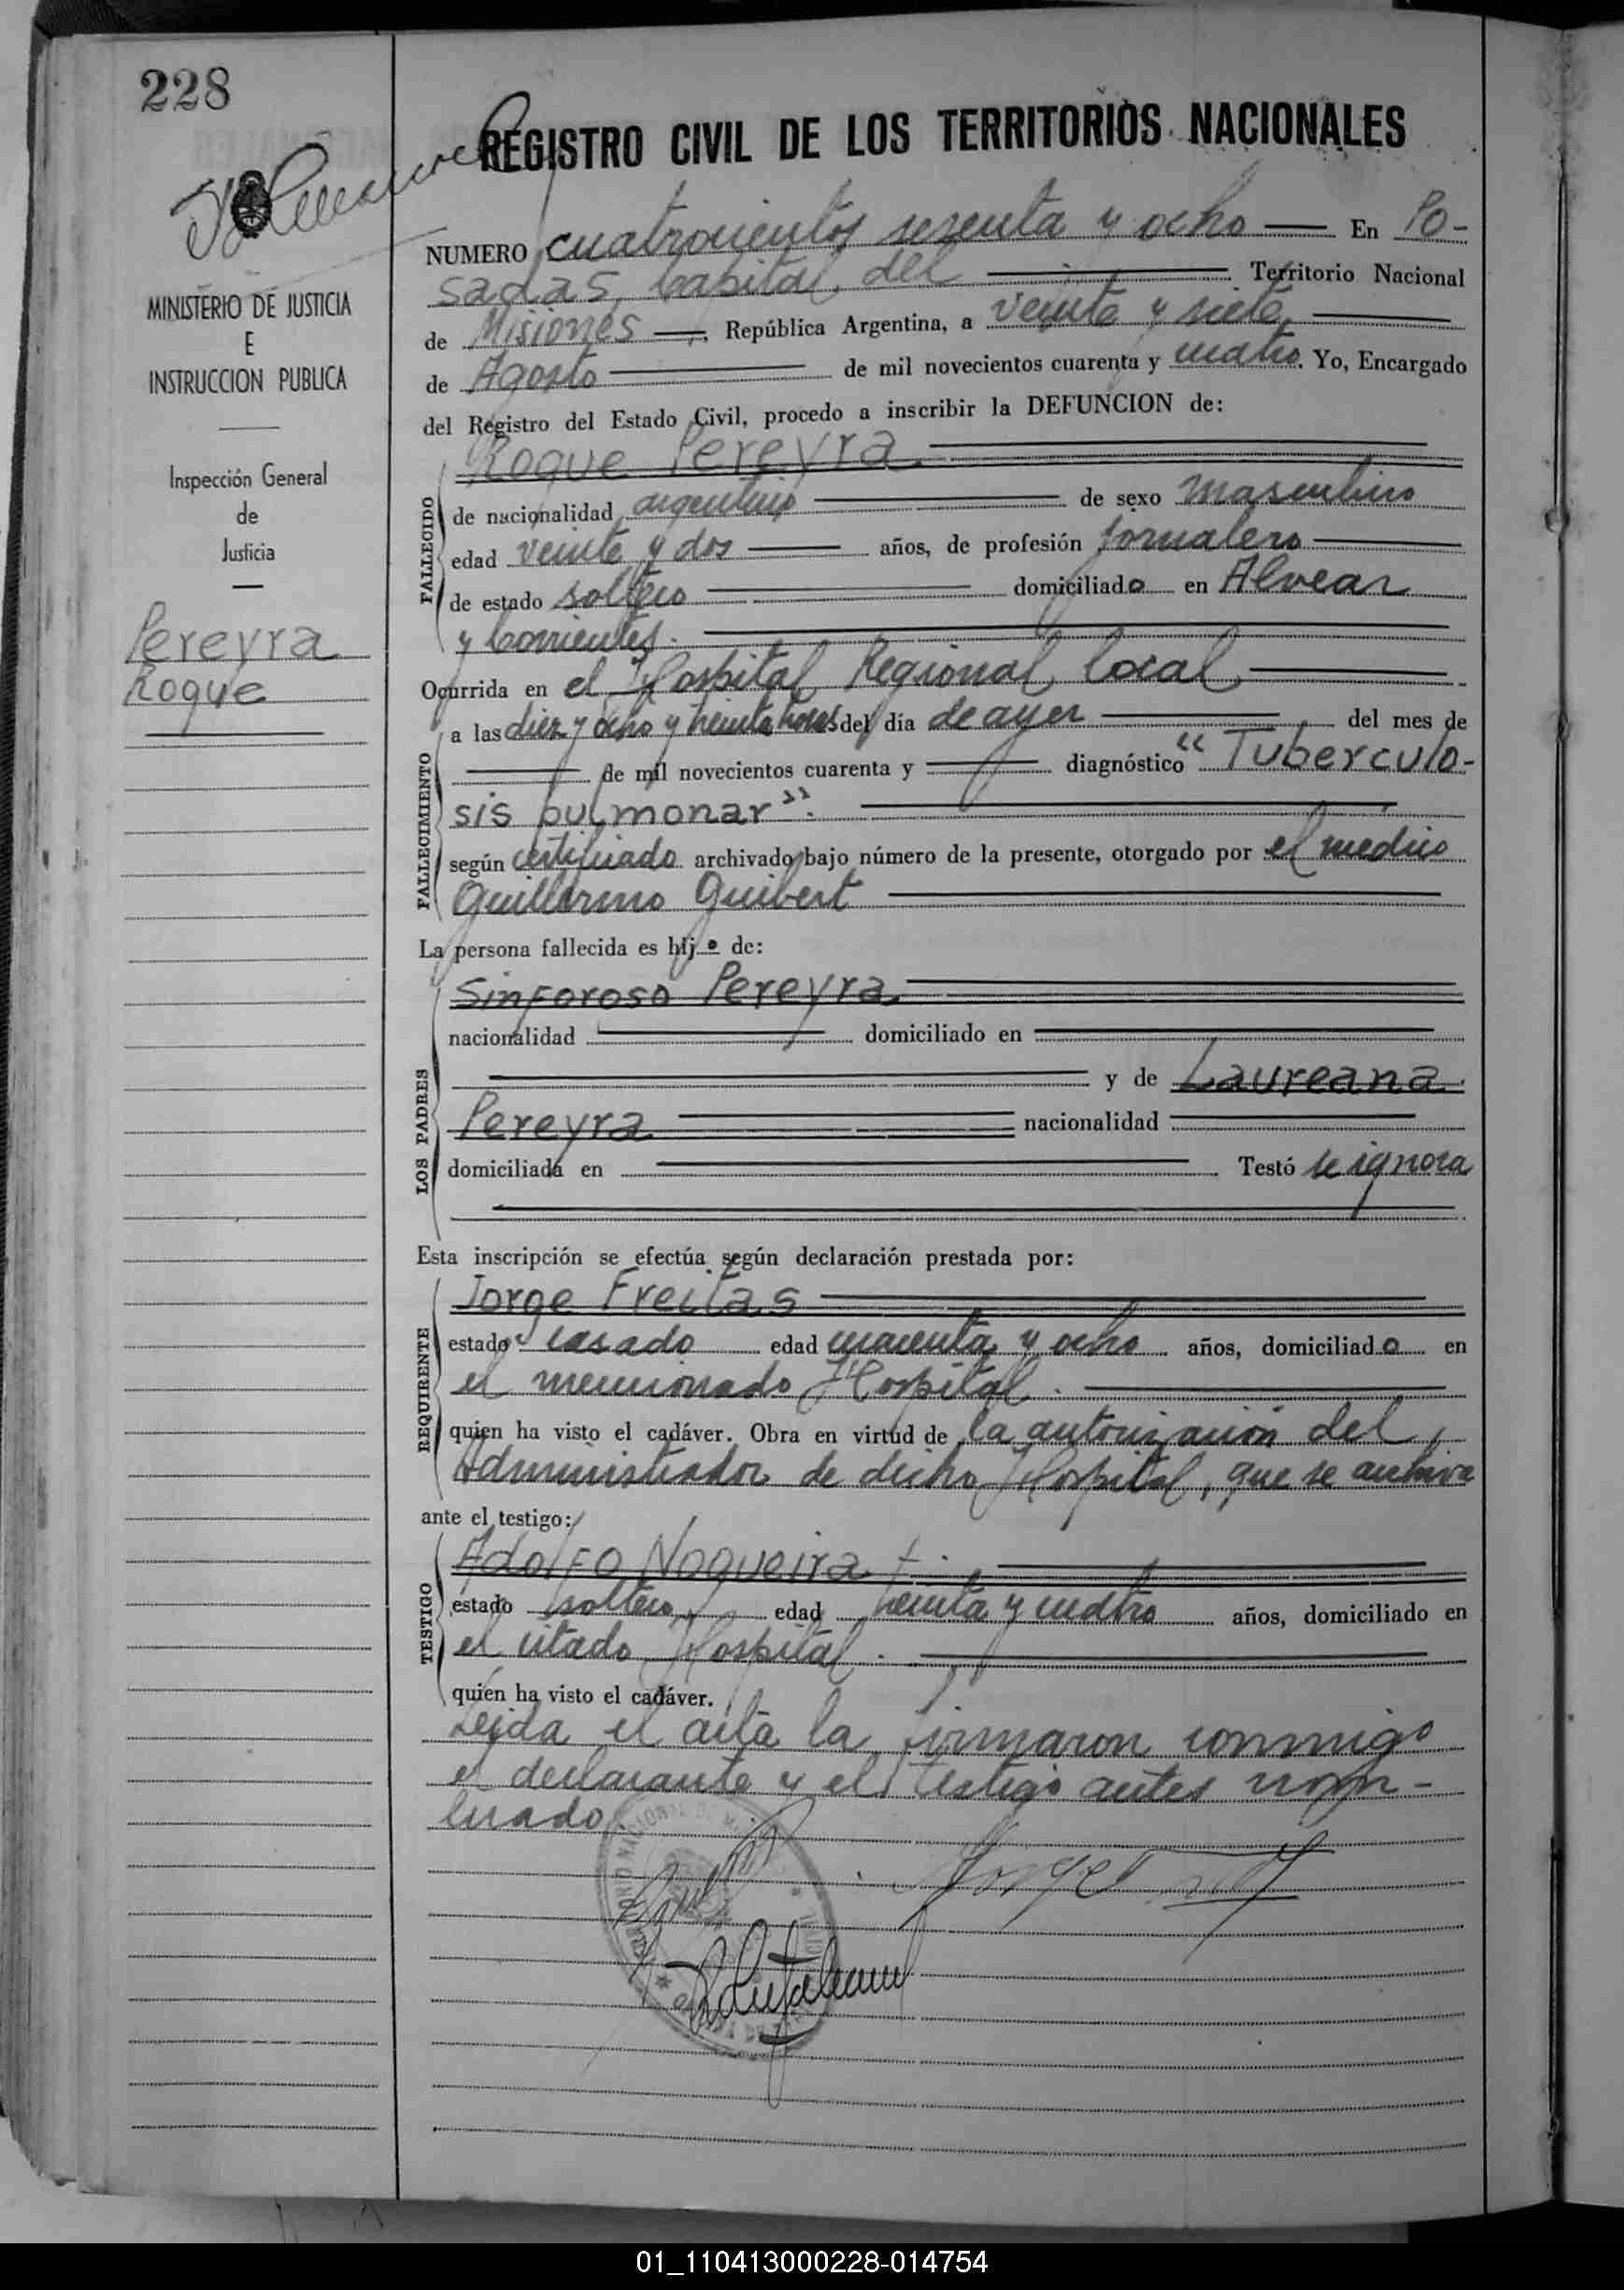 228
REGISTRO CIVIL DE LOS TERRITORIOS NACIONALES
NUMERO cuatrocientos sesenta y ocho En Po-
sadas, Capital del Territorio Nacional
de Misiones, República Argentina, a veinte y siete
de Agosto de mil novecientos cuarenta y cuatro. Yo, Encargado
del Registro del Estado Civil, procedo a inscribir la DEFUNCION de:
MINISTERIO DE JUSTICIA
E
INSTRUCCION PUBLICA
Inspección General
de
Justicia
Pereyra
Roque
FALLECIDO
Roque Pereyra
de nacionalidad argentino de sexo masculino
edad veinte y dos años, de profesión jornalero
de estado soltero domiciliado en Alvear
y Corrientes.
Ocurrida en el Hospital Regional local
FALLECIMIENTO
a las diez y ocho y treinta horas del día de ayer del mes de
de mil novecientos cuarenta y diagnóstico "Tuberculo-
sis pulmonar".
según certificado archivado bajo número de la presente, otorgado por el médico
Guillermo Guibert
La persona fallecida es hijo de:
LOS PADRES
Sinforoso Pereyra
nacionalidad domiciliado en
y de Laureana
Pereyra nacionalidad
domiciliada en Testó se ignora
Esta inscripción se efectúa según declaración prestada por:
REQUIRENTE
Jorge Freitas
estado casado edad cuarenta y ocho años, domiciliado en
el mencionado Hospital.
quien ha visto el cadáver. Obra en virtud de la autorización del
Administrador de dicho Hospital, que se archiva
ante el testigo:
TESTIGO
Adolfo Nogueira
estado soltero edad treinta y cuatro años, domiciliado en
el citado Hospital.
quién ha visto el cadáver.
Leída el acta la firmaron conmigo
el declarante y el testigo antes nom-
brado.
01_110413000228-014754